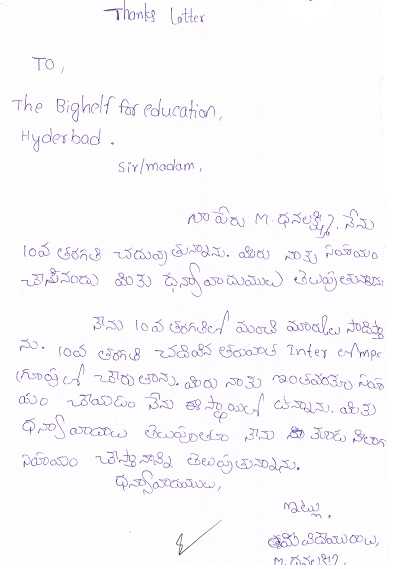 Thanks Lotter
TO,
The Bighelf for education,
Hyderbad.
Sir/madam,
నా పేరు M. ధనలక్ష్మి. నేను
10వ తరగతి చదువుతున్నాను. మీరు నాకు సహాయం
చేసినందు మీకు ధన్యావాదుములు తెలుపుతున్నాను
నేను 10వ తరగతిలో మంచి మార్కులు సాదిస్తా
ను. 10వ తరగతి చదివిన తరువాత Inter లో mpc
గ్రూపులో చేరుతాను. మీరు నాకు ఇంతవరకు సహా
యం చేయడం నేను ఈ స్థాయిలో ఉన్నాను. మీకు
ధన్యావాదాలు తెలుపుతూ నేను తోడు
సహాయం చేస్తానాని తెలుపుతున్నాను.
ధన్యావాదములు,
ఇట్లు,
తమ విదేయురాలు,
M. ధనలక్ష్మి.